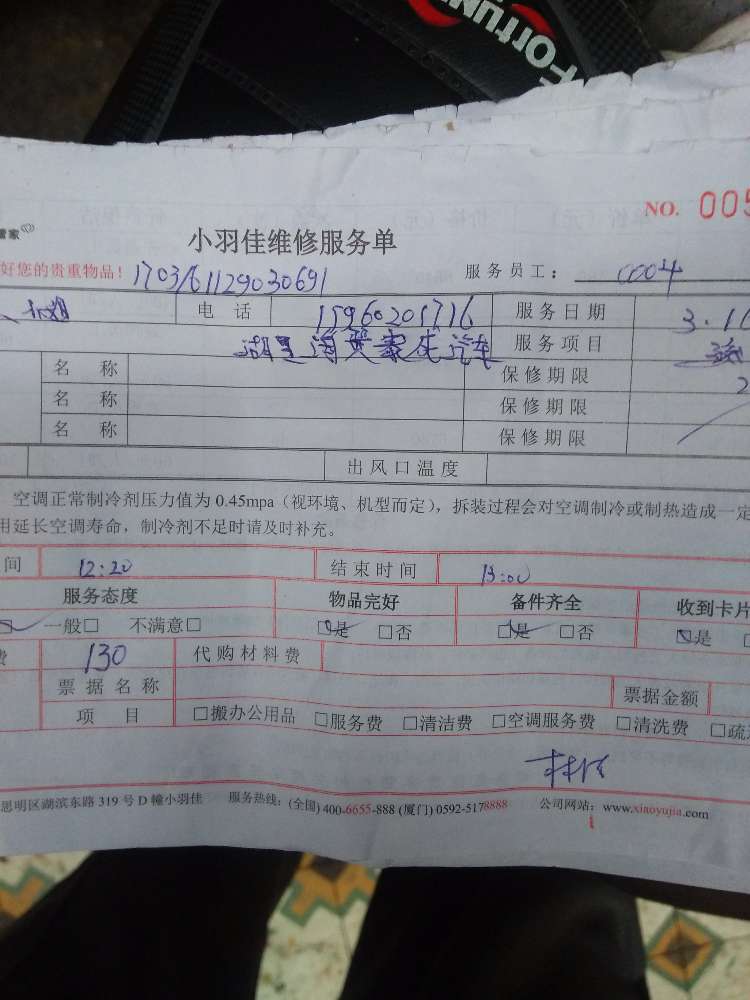 FORTUN
NO. 005
小羽佳维修服务单
好您的贵重物品! 1703161129030691 服务员工: 0004
电话 15960201716 服务日期 3.1
服务项目
名称 保修期限 2
名称 保修期限
名称 保修期限
出风口温度
空调正常制冷剂压力值为 0.45mpa（视环境、机型而定），拆装过程会对空调制冷或制热造成一定
用延长空调寿命，制冷剂不足时请及时补充。
间 12:20 结束时间 13:00
服务态度 物品完好 备件齐全 收到卡片
一般□ 不满意□ ☑是 □否 ☑是 □否 ☑是
费 130 代购材料费
票据名称 票据金额
项目 □搬办公用品 □服务费 □清洁费 □空调服务费 □清洗费 □疏
思明区湖滨东路 319 号 D 幢小羽佳 服务热线: (全国) 400-6655-888 (厦门) 0592-5178888 公司网站: www.xiaoyujia.com